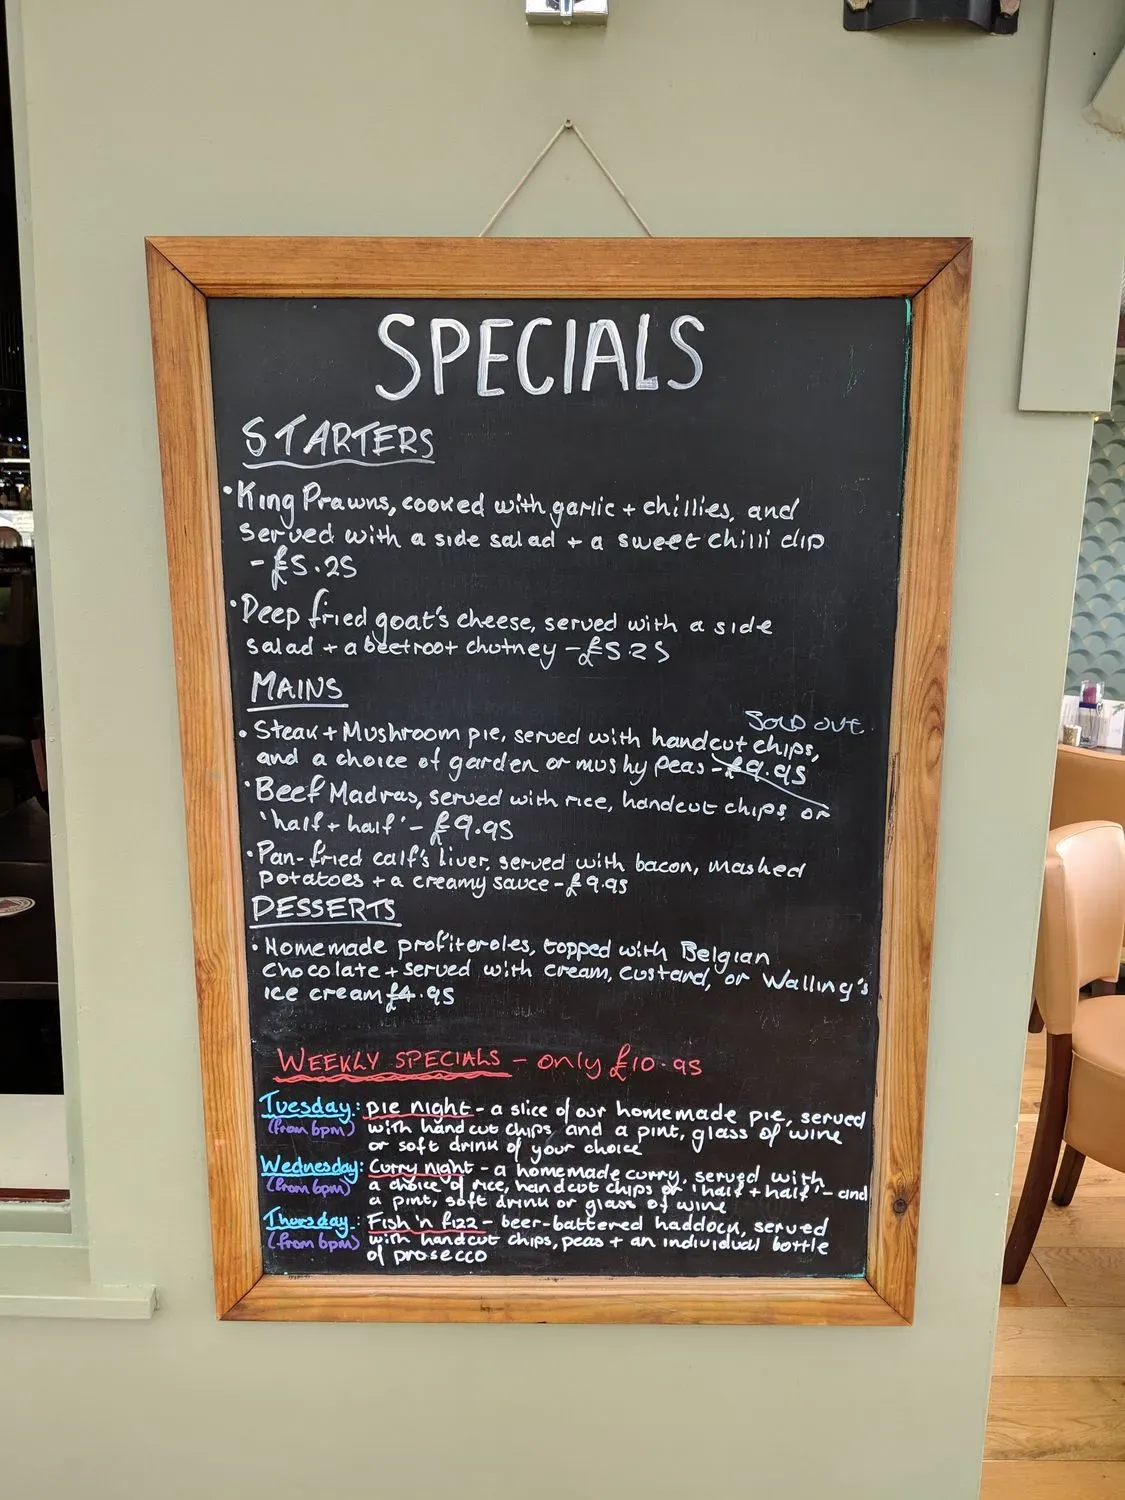 SPECIALS
STARTERS
• King Prawns, cooked with garlic + chillies, and
served with a side salad + a sweet chilli dip
- £5.25
• Deep fried goat's cheese, served with a side
salad + a beetroot chutney - £5.25
MAINS
SOLD OUT
• Steak + Mushroom pie, served with handcut chips,
and a choice of garden or mushy peas - £9.95
• Beef Madras, served with rice, handcut chips or
'half + half' - £9.95
• Pan-fried calf's liver, served with bacon, mashed
potatoes + a creamy sauce - £9.95
DESSERTS
• Homemade profiteroles, topped with Belgian
chocolate + served with cream, custard, or Walling's
ice cream £4.95
WEEKLY SPECIALS - only £10.95
Tuesday: pie night - a slice of our homemade pie, served
(from 6pm) with handcut chips and a pint, glass of wine
or soft drink of your choice
Wednesday: Curry night - a homemade curry, served with
(from 6pm) a choice of rice, handcut chips or 'half + half' - and
a pint, soft drink or glass of wine
Thursday: Fish 'n fizz - beer-battered haddock, served
(from 6pm) with handcut chips, peas + an individual bottle
of prosecco